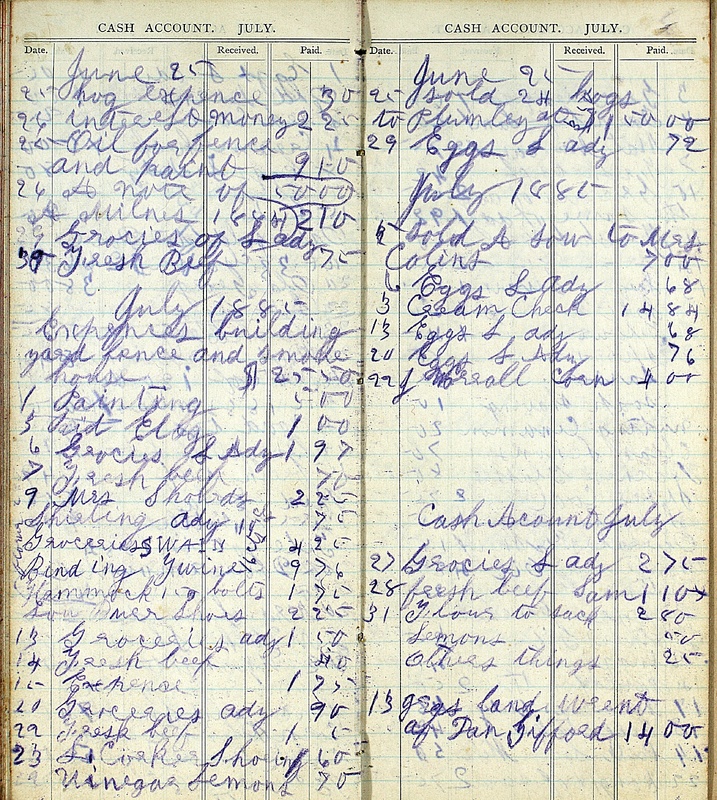 CASH ACCOUNT. JULY.
Date. Received. Paid.
June 25
25 hog expence 30
26 interest money 2 25
26 Oil for fence
and paint 9 50
26 A note of 50 00
A Milnes 1884 210
29 Grocies of L ady
30 Fresh Beef 75
July 1885
Expences building
yard fence and smoke
house $ 25 50
1 Painting 5 00
3 Paid 1 00
6 Grocies L Ady 1 97
7 Fresh beef 70
9 Mrs 2 25
ady 75
Groceries SWAIN 4 25
Binding Twine 9 76
Hammock 1 bolts 1 75
Shoes 2 25
13 Groceries ady 1 50
14 Fresh beef 40
15 Expence 1 75
20 Groceries ady 90
22 Fresh beef 1
23 60
Vinegar Lemons 70
CASH ACCOUNT. JULY.
Date. Received. Paid.
June 25
25 sold 24 hogs
to Plumley at 1 50 00
29 Eggs L ady 72
July 1885
Sold A sow to Mrs
Colins 7 00
6 Eggs L Ady 68
13 Cream Check 14 84
13 Eggs L ady 68
20 Eggs L Ady 76
22 Corn 4 00
Cash Acount July
27 Grocies L ady 2 75
28 fresh beef Sam 1 10
31 Flour to sack 2 80
Lemons 50
Others things 25
13 gras land went
of Dan Gifford 14 00